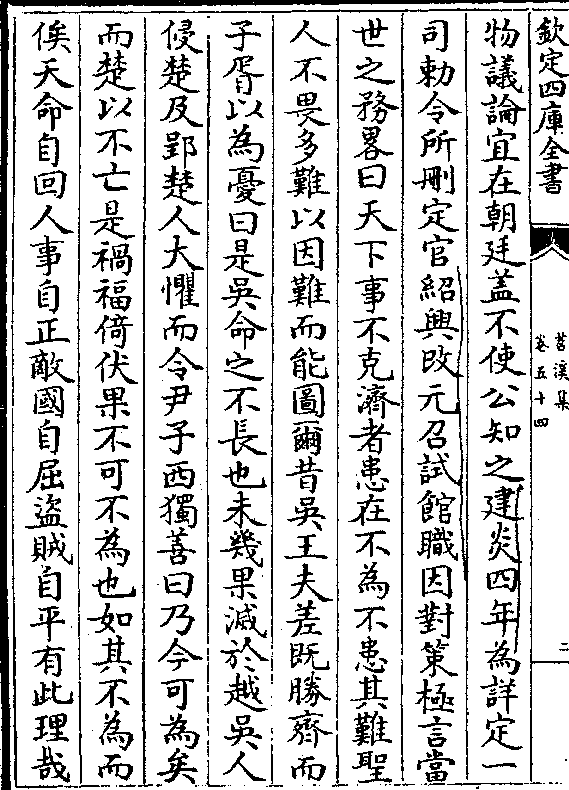 欽定四庫全書
苕溪集
卷五十四
二
物議論宜在朝廷盖不使公知之建炎四年為詳定一
司勅令所刪定官紹興改元召試館職因對策極言當
世之務畧曰天下事不克濟者患在不為不患其難聖
人不畏多難以因難而能圖爾昔吳王夫差既勝齊而
子胥以為憂曰是吳命之不長也未幾果滅於越吳人
侵楚及郢楚人大懼而令尹子西獨善曰乃今可為矣
而楚以不亡是禍福倚伏果不可不為也如其不為而
俟天命自回人事自正敵國自屈盜賊自平有此理哉